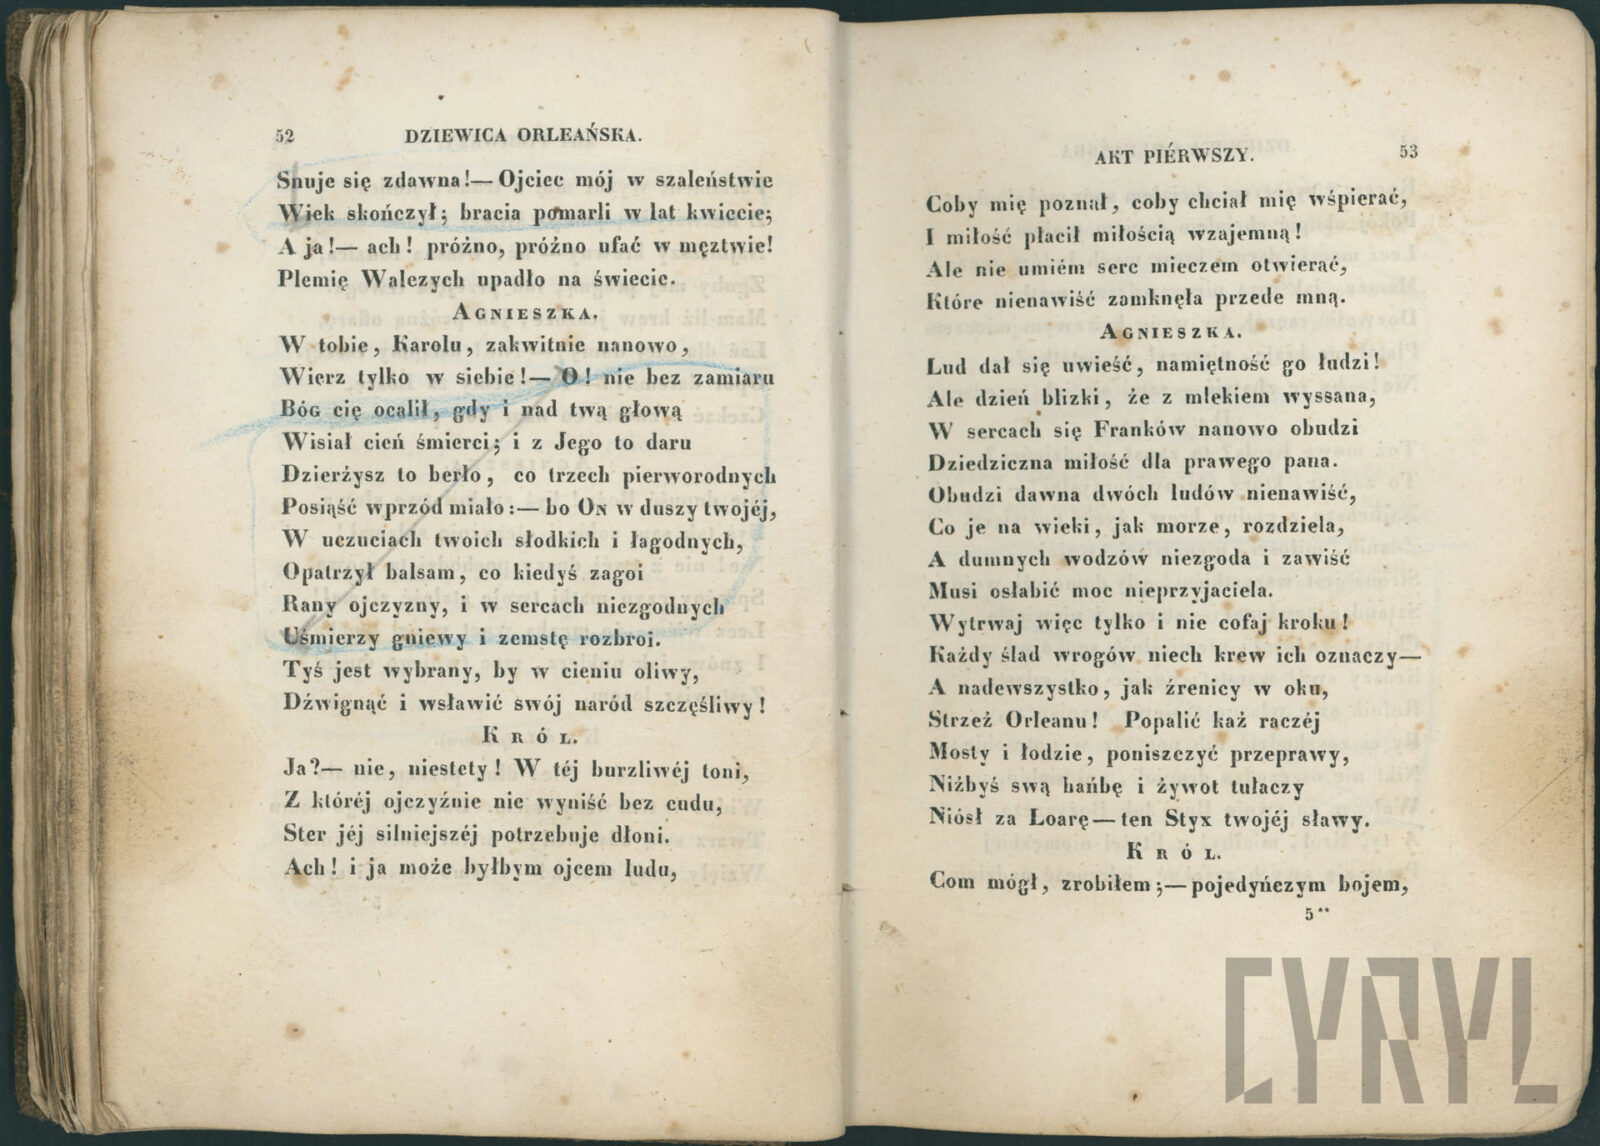 52 DZIEWICA ORLEAŃSKA.
Snuje się zdawna!— Ojciec mój w szaleństwie
Wiek skończył; bracia pomarli w lat kwiecie;
A ja!— ach! próżno, próżno ufać w męztwie!
Plemię Walezych upadło na świecie.
AGNIESZKA.
W tobie, Karolu, zakwitnie nanowo,
Wierz tylko w siebie!— O! nie bez zamiaru
BÓG cię ocalił, gdy i nad twą głową
Wisiał cień śmierci; i z Jego to daru
Dzierżysz to berło, co trzech pierworodnych
Posiąść wprzód miało:— bo ON w duszy twojéj,
W uczuciach twoich słodkich i łagodnych,
Opatrzył balsam, co kiedyś zagoi
Rany ojczyzny, i w sercach niezgodnych
Uśmierzy gniewy i zemstę rozbroi.
Tyś jest wybrany, by w cieniu oliwy,
Dźwignąć i wsławić swój naród szczęśliwy!
KRÓL.
Ja?— nie, niestety! W téj burzliwéj toni,
Z któréj ojczyźnie nie wyniść bez cudu,
Ster jéj silniejszéj potrzebuje dłoni.
Ach! i ja może byłbym ojcem ludu,
AKT PIÉRWSZY. 53
Coby mię poznał, coby chciał mię wśpierać,
I miłość płacił miłością wzajemną!
Ale nie umiém serc mieczem otwierać,
Które nienawiść zamknęła przede mną.
AGNIESZKA.
Lud dał się uwieść, namiętność go łudzi!
Ale dzień blizki, że z mlekiem wyssana,
W sercach się Franków nanowo obudzi
Dziedziczna miłość dla prawego pana.
Obudzi dawna dwóch ludów nienawiść,
Co je na wieki, jak morze, rozdziela,
A dumnych wodzów niezgoda i zawiść
Musi osłabić moc nieprzyjaciela.
Wytrwaj więc tylko i nie cofaj kroku!
Każdy ślad wrogów niech krew ich oznaczy—
A nadewszystko, jak źrenicy w oku,
Strzeż Orleanu! Popalić każ raczéj
Mosty i łodzie, poniszczyć przeprawy,
Niżbyś swą hańbę i żywot tułaczy
Niósł za Loarę—ten Styx twojéj sławy.
KRÓL.
Com mógł, zrobiłem;—pojedyńczym bojem,
5**
CYRYL